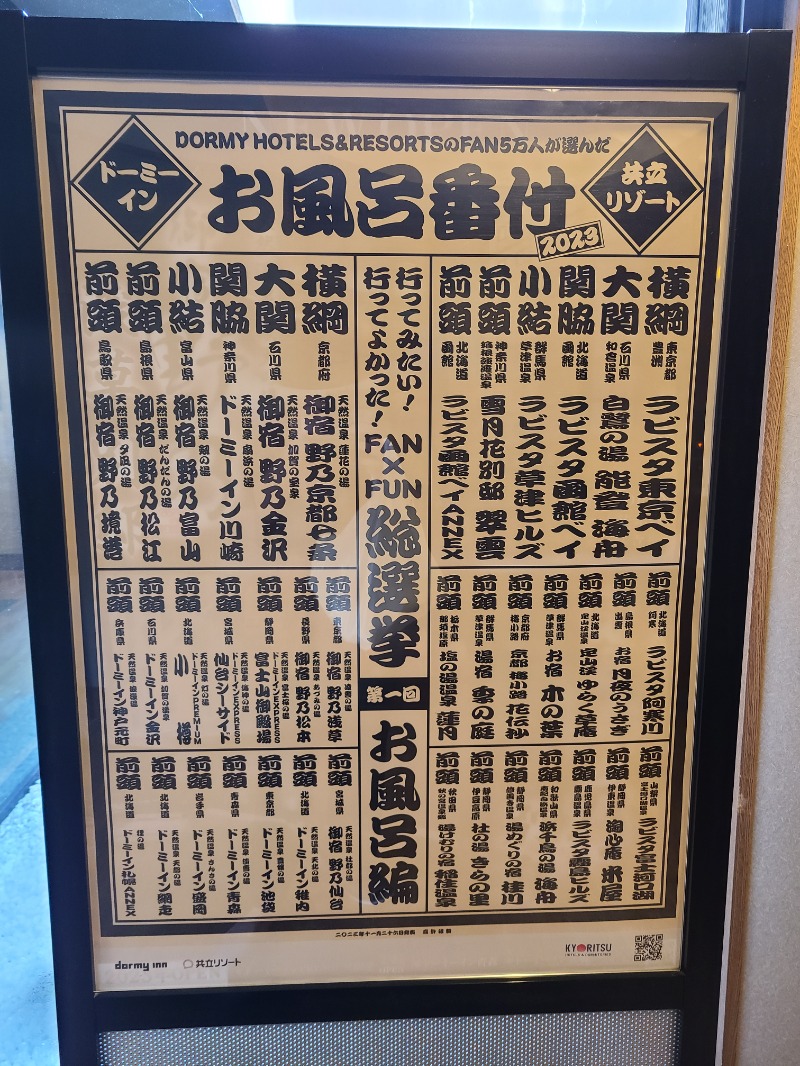 DORMY HOTELS&RESORTSのFAN5万人が選んだ
ドーミー
イン
お風呂番付
2023
共立
リゾート
横綱 東京都 豊洲 ラビスタ東京ベイ
大関 石川県 和倉温泉 白鷺の湯 能登 海舟
関脇 北海道 函館 ラビスタ函館ベイ
小結 群馬県 草津温泉 ラビスタ草津ヒルズ
前頭 神奈川県 箱根強羅温泉 雪月花別邸 翠雲
前頭 北海道 函館 ラビスタ函館ベイANNEX
前頭 北海道 阿寒 ラビスタ阿寒川
前頭 島根県 出雲 お宿 月夜のうさぎ
前頭 北海道 定山渓温泉 定山渓 ゆらく草庵
前頭 群馬県 草津温泉 お宿 木の葉
前頭 京都府 梅小路 京都 梅小路 花伝抄
前頭 群馬県 草津温泉 湯宿 季の庭
前頭 栃木県 那須塩原 塩の湯温泉 蓮月
前頭 山梨県 ラビスタ富士河口湖
前頭 静岡県 伊東温泉 淘心庵 米屋
前頭 鹿児島県 霧島温泉 ラビスタ霧島ヒルズ
前頭 和歌山県 浜千鳥の湯 海舟
前頭 静岡県 修善寺温泉 湯めぐりの宿 桂川
前頭 静岡県 伊豆高原 杜の湯 きらの里
前頭 秋田県 秋の宮温泉郷 湯けむりの宿 稲住温泉
行ってみたい!
行ってよかった!
FAN×FUN
総選挙
第一回
お風呂編
横綱 京都府 天然温泉 蓮花の湯 御宿 野乃京都七条
大関 石川県 天然温泉 加賀の宝泉 御宿 野乃金沢
関脇 神奈川県 天然温泉 扇浜の湯 ドーミーイン川崎
小結 富山県 天然温泉 剱の湯 御宿 野乃富山
前頭 島根県 天然温泉 だんだんの湯 御宿 野乃松江
前頭 鳥取県 天然温泉 夕凪の湯 御宿 野乃境港
前頭 東京都 天然温泉 凌雲の湯 御宿 野乃浅草
前頭 長野県 天然温泉 あづみの湯 御宿 野乃松本
前頭 静岡県 天然温泉 富士桜の湯 ドーミーインEXPRESS 富士山御殿場
前頭 宮城県 天然温泉 海神の湯 ドーミーインEXPRESS 仙台シーサイド
前頭 北海道 天然温泉 灯の湯 ドーミーインPREMIUM 小樽
前頭 石川県 天然温泉 加賀の湧泉 ドーミーイン金沢
前頭 兵庫県 天然温泉 浪漫湯 ドーミーイン神戸元町
前頭 宮城県 天然温泉 杜都の湯 御宿 野乃仙台
前頭 北海道 天然温泉 天北の湯 ドーミーイン稚内
前頭 東京都 天然温泉 豊穣の湯 ドーミーイン池袋
前頭 青森県 天然温泉 ドーミーイン青森
前頭 岩手県 天然温泉 さんさの湯 ドーミーイン盛岡
前頭 北海道 天然温泉 天都の湯 ドーミーイン網走
前頭 北海道 狸の湯 ドーミーイン札幌ANNEX
二〇二三年十一月二十六日発表
dormy inn
共立リゾート
KYORITSU